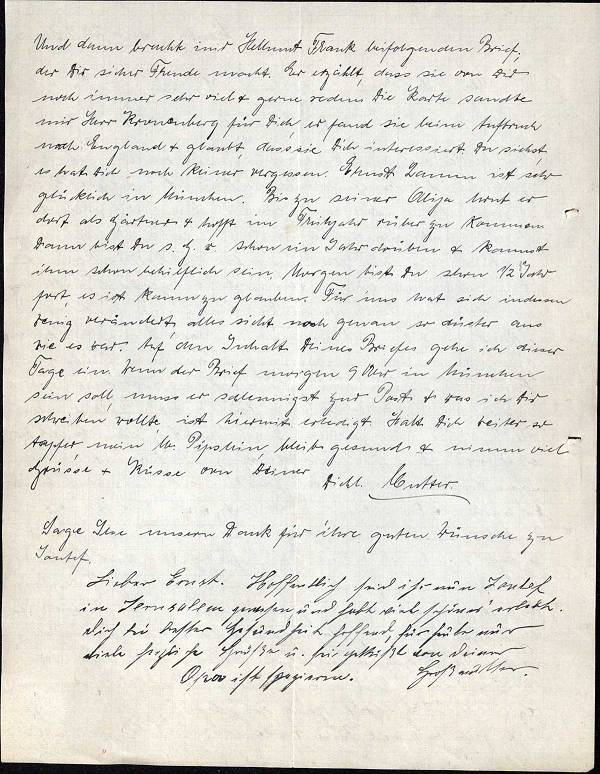 Und dann brachte mir Hellmut Frank beifolgenden Brief,
der Dir sicher Freude macht. Er erzählt, dass sie von Dir
noch immer sehr viel & gerne reden. Die Karte sandte
mir Herr Kronenberg für Dich er fand sie beim Aufbruch
nach England & glaubt, dass sie Dich interessiert. Du siehst,
es hat Dich noch keiner vergessen. Ernst Lamm ist sehr
glücklich in München. Bis zu seiner Alija lernt er
dort als Gärtner & hofft im Frühjahr rüber zu kommen.
Dann bist Du s. G. w. schon ein Jahr drüben & kannst
ihm schon behilflich sein. Morgen bist Du schon 1/2 Jahr
fort, es ist kaum zu glauben. Für uns hat sich indessen
wenig verändert, alles sieht noch genau so düster aus
wie es war. Auf den Inhalt Deines Briefes gehe ich dieser
Tage ein. Wenn der Brief morgen 9 Uhr in München
sein soll, muss er schleunigst zur Post & was ich Dir
schreiben wollte, ist hiermit erledigt. Halt Dich weiter so
tapfer mein lb. Pipslein, bleib gesund & nimm viel
Grüsse & Küsse von Deiner
Dichl. Mutter.
Sage Ilse unsern Dank für ihre guten Wünsche zu
Jontef.
Lieber Ernst. Hoffentlich seid ihr nun Jontef
in Jerusalem gewesen und habt viel schönes erlebt.
Dich bei bester Gesundheit hoffend, für heute nur
viele herzliche Grüße u. sei geküßt von Deiner
Opa ist spazieren. Großmutter.